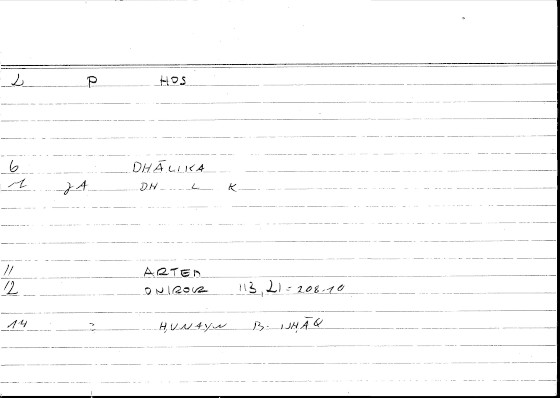 2 P HOS
6 DHĀLIKA
1 JA DH L K
11 ARTEM
12 ONIROCR 113, 21 = 208.10
14 : HUNAYN B. ISHĀQ